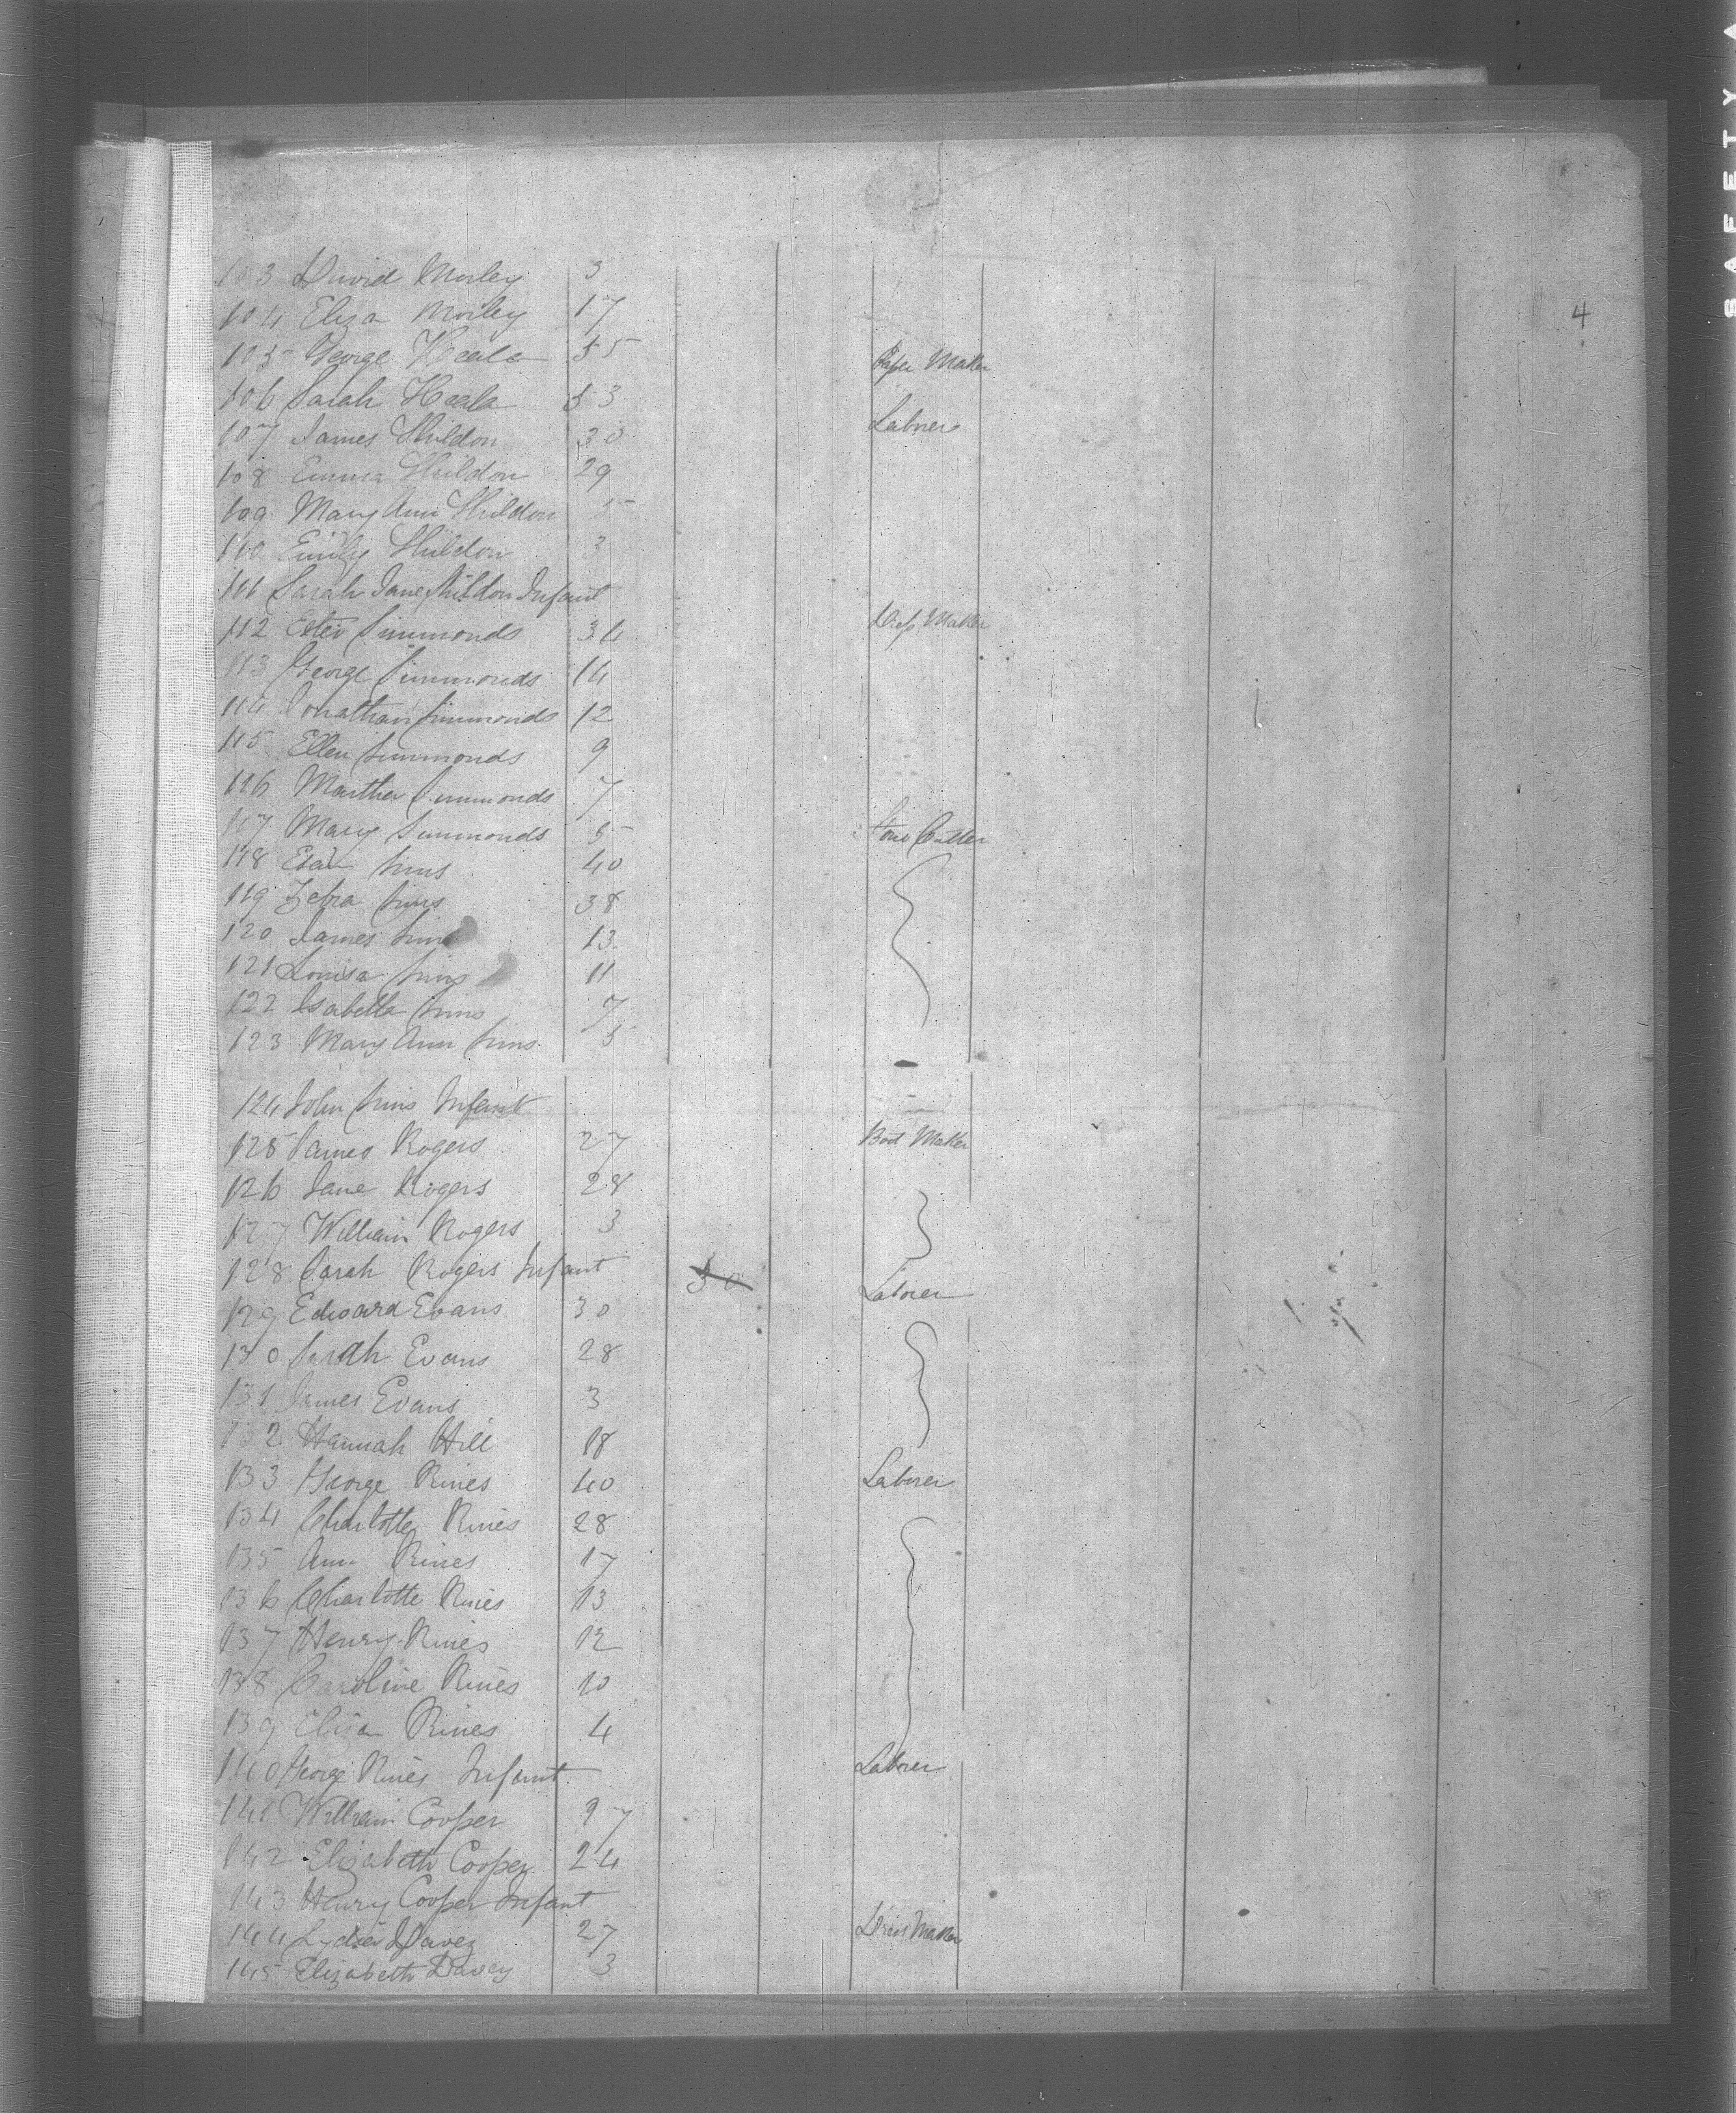 4
103 David Morley 3
104 Eliza Morley 17
105 George Heale 55 Paper Maker
106 Sarah Heale 53
107 James Shildon 30 Laborer
108 Emma Shildon 29
109 Mary Ann Shildon 5
110 Emily Shildon 3
111 Sarah Jane Shildon Infant
112 Ester Simmonds 34 Dress Maker
113 George Simmonds 14
114 Jonathan Simmonds 12
115 Ellen Simmonds 9
116 Martha Simmonds 7
117 Mary Simmonds 5
118 Esau Sims 40 Stone Cutter
119 Zebra Sims 38
120 James Sims 13
121 Louisa Sims 11
122 Isabella Sims 7
123 Mary Ann Sims 5
124 John Sims Infant
125 James Rogers 27 Boot Maker
126 Jane Rogers 28
127 William Rogers 3
128 Sarah Rogers Infant 30
129 Edward Evans 30 Laborer
130 Sarah Evans 28
131 James Evans 3
132 Hannah Hill 18
133 George Rines 40 Laborer
134 Charlotte Rines 28
135 Ann Rines 17
136 Charlotte Rines 13
137 Henry Rines 12
138 Caroline Rines 10
139 Eliza Rines 4
140 George Rines Infant
141 William Cooper 27 Laborer
142 Elizabeth Cooper 24
143 Henry Cooper Infant
144 Lydia Davey 27 Dress Maker
145 Elizabeth Davey 3
SAFETY